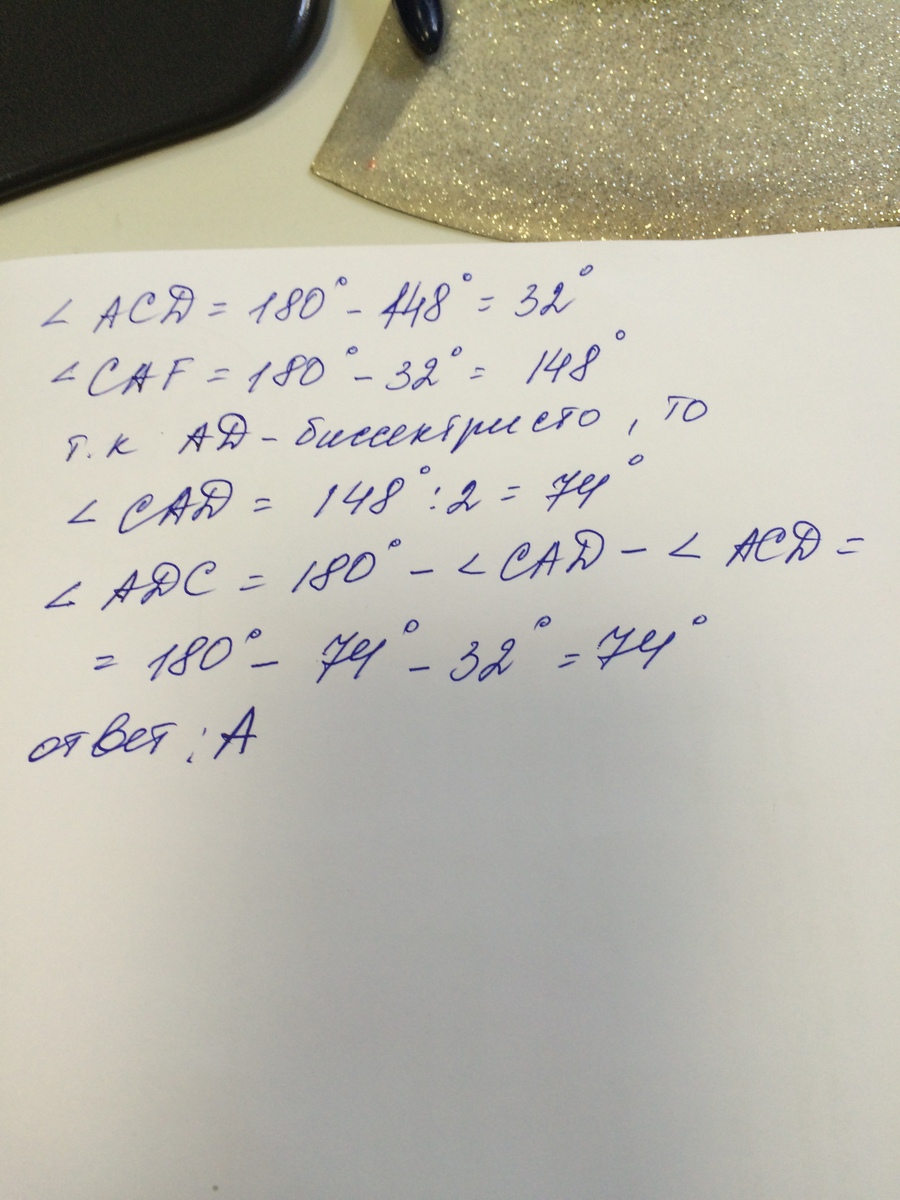 ∠ ACD = 180° - 148° = 32°
∠ CAF = 180° - 32° = 148°
т.к AD - биссектристо, то
∠ CAD = 148° : 2 = 74°
∠ ADC = 180° - ∠ CAD - ∠ ACD =
= 180° - 74° - 32° = 74°
ответ: A